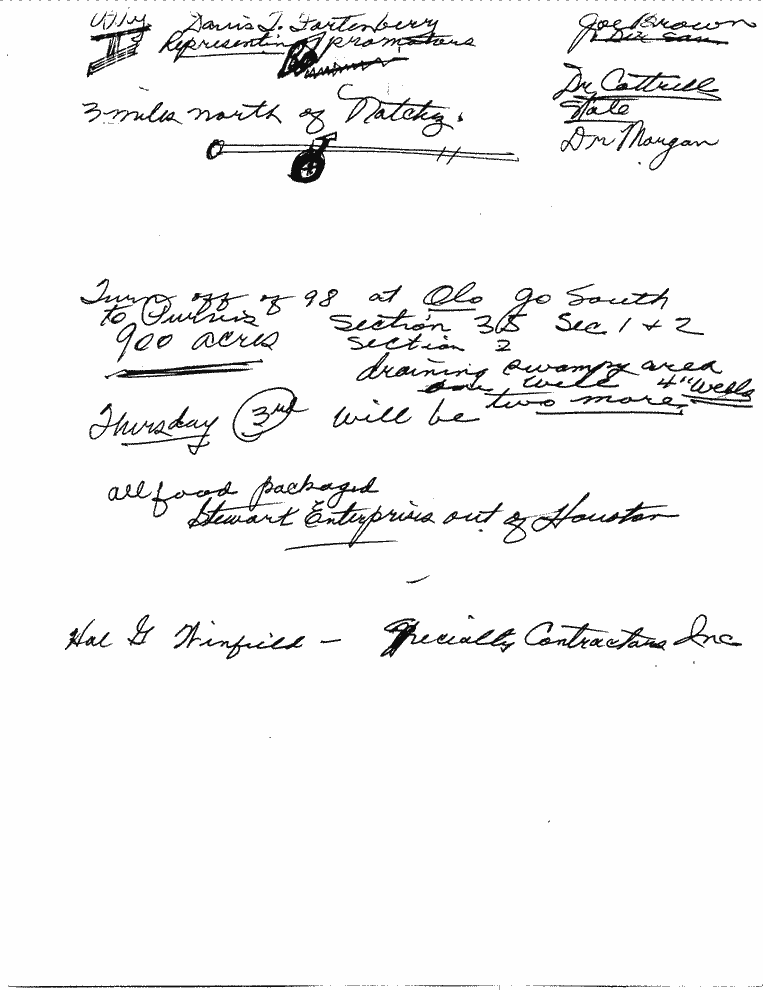 Atty Davis T. Fortenberry
Representing promoters
Joe Brown
Dr. Cottrell
Nate
Dr Morgan
3 miles north of Natchez.
Turn off of 98 at Olo go South
to Section 35 Sec 1 + 2
900 acres Section 2
draining swampy area
one well 4" wells
Thursday 3rd will be two more.
all food packaged
Stewart Enterprises out of Houston
Hal G Winfield - Specialty Contractors Inc